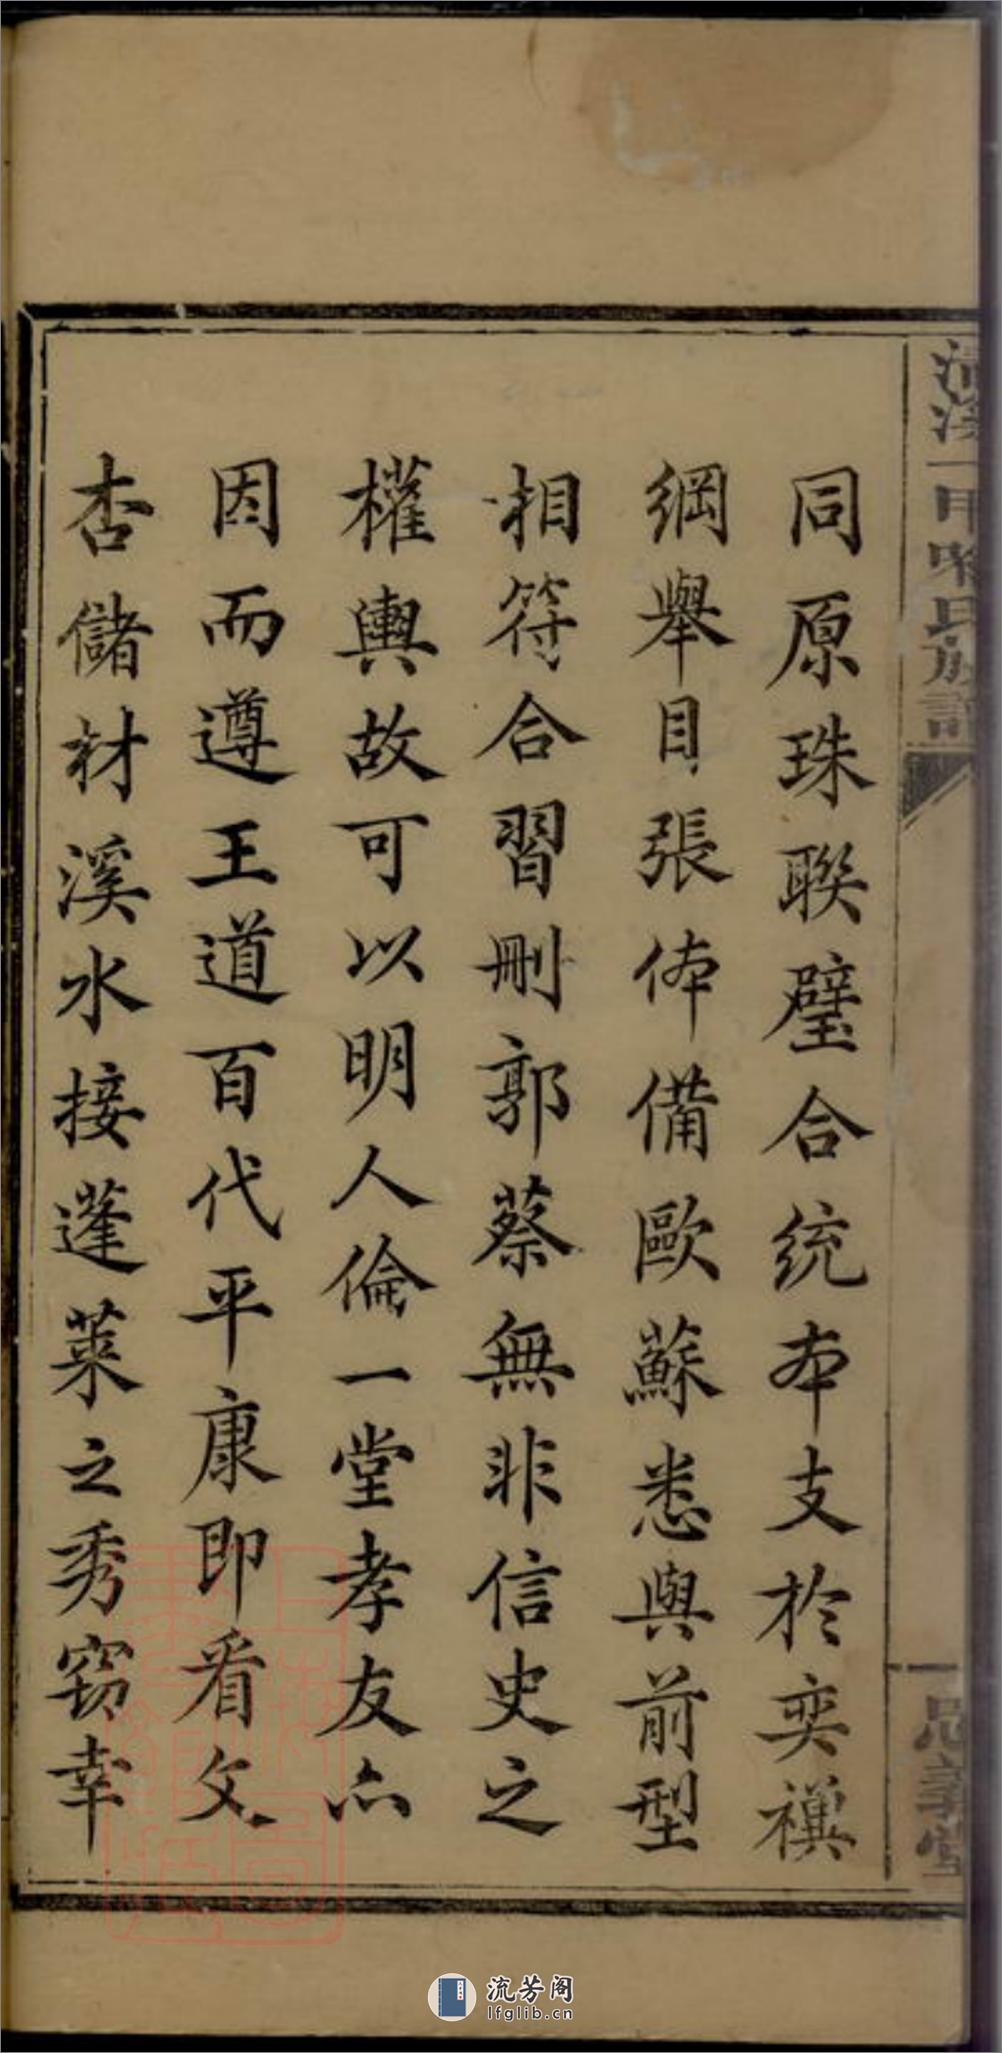 同原珠聯璧合統本支於奕禩
綱舉目張体備歐蘇悉與前型
相符合習刪郭蔡無非信史之
權輿故可以明人倫一堂孝友六
因而遵王道百代平康即看文
杏儲材溪水接蓬萊之秀窈幸
氏族譜
一
思義堂
流芳阁
lfglib.cn